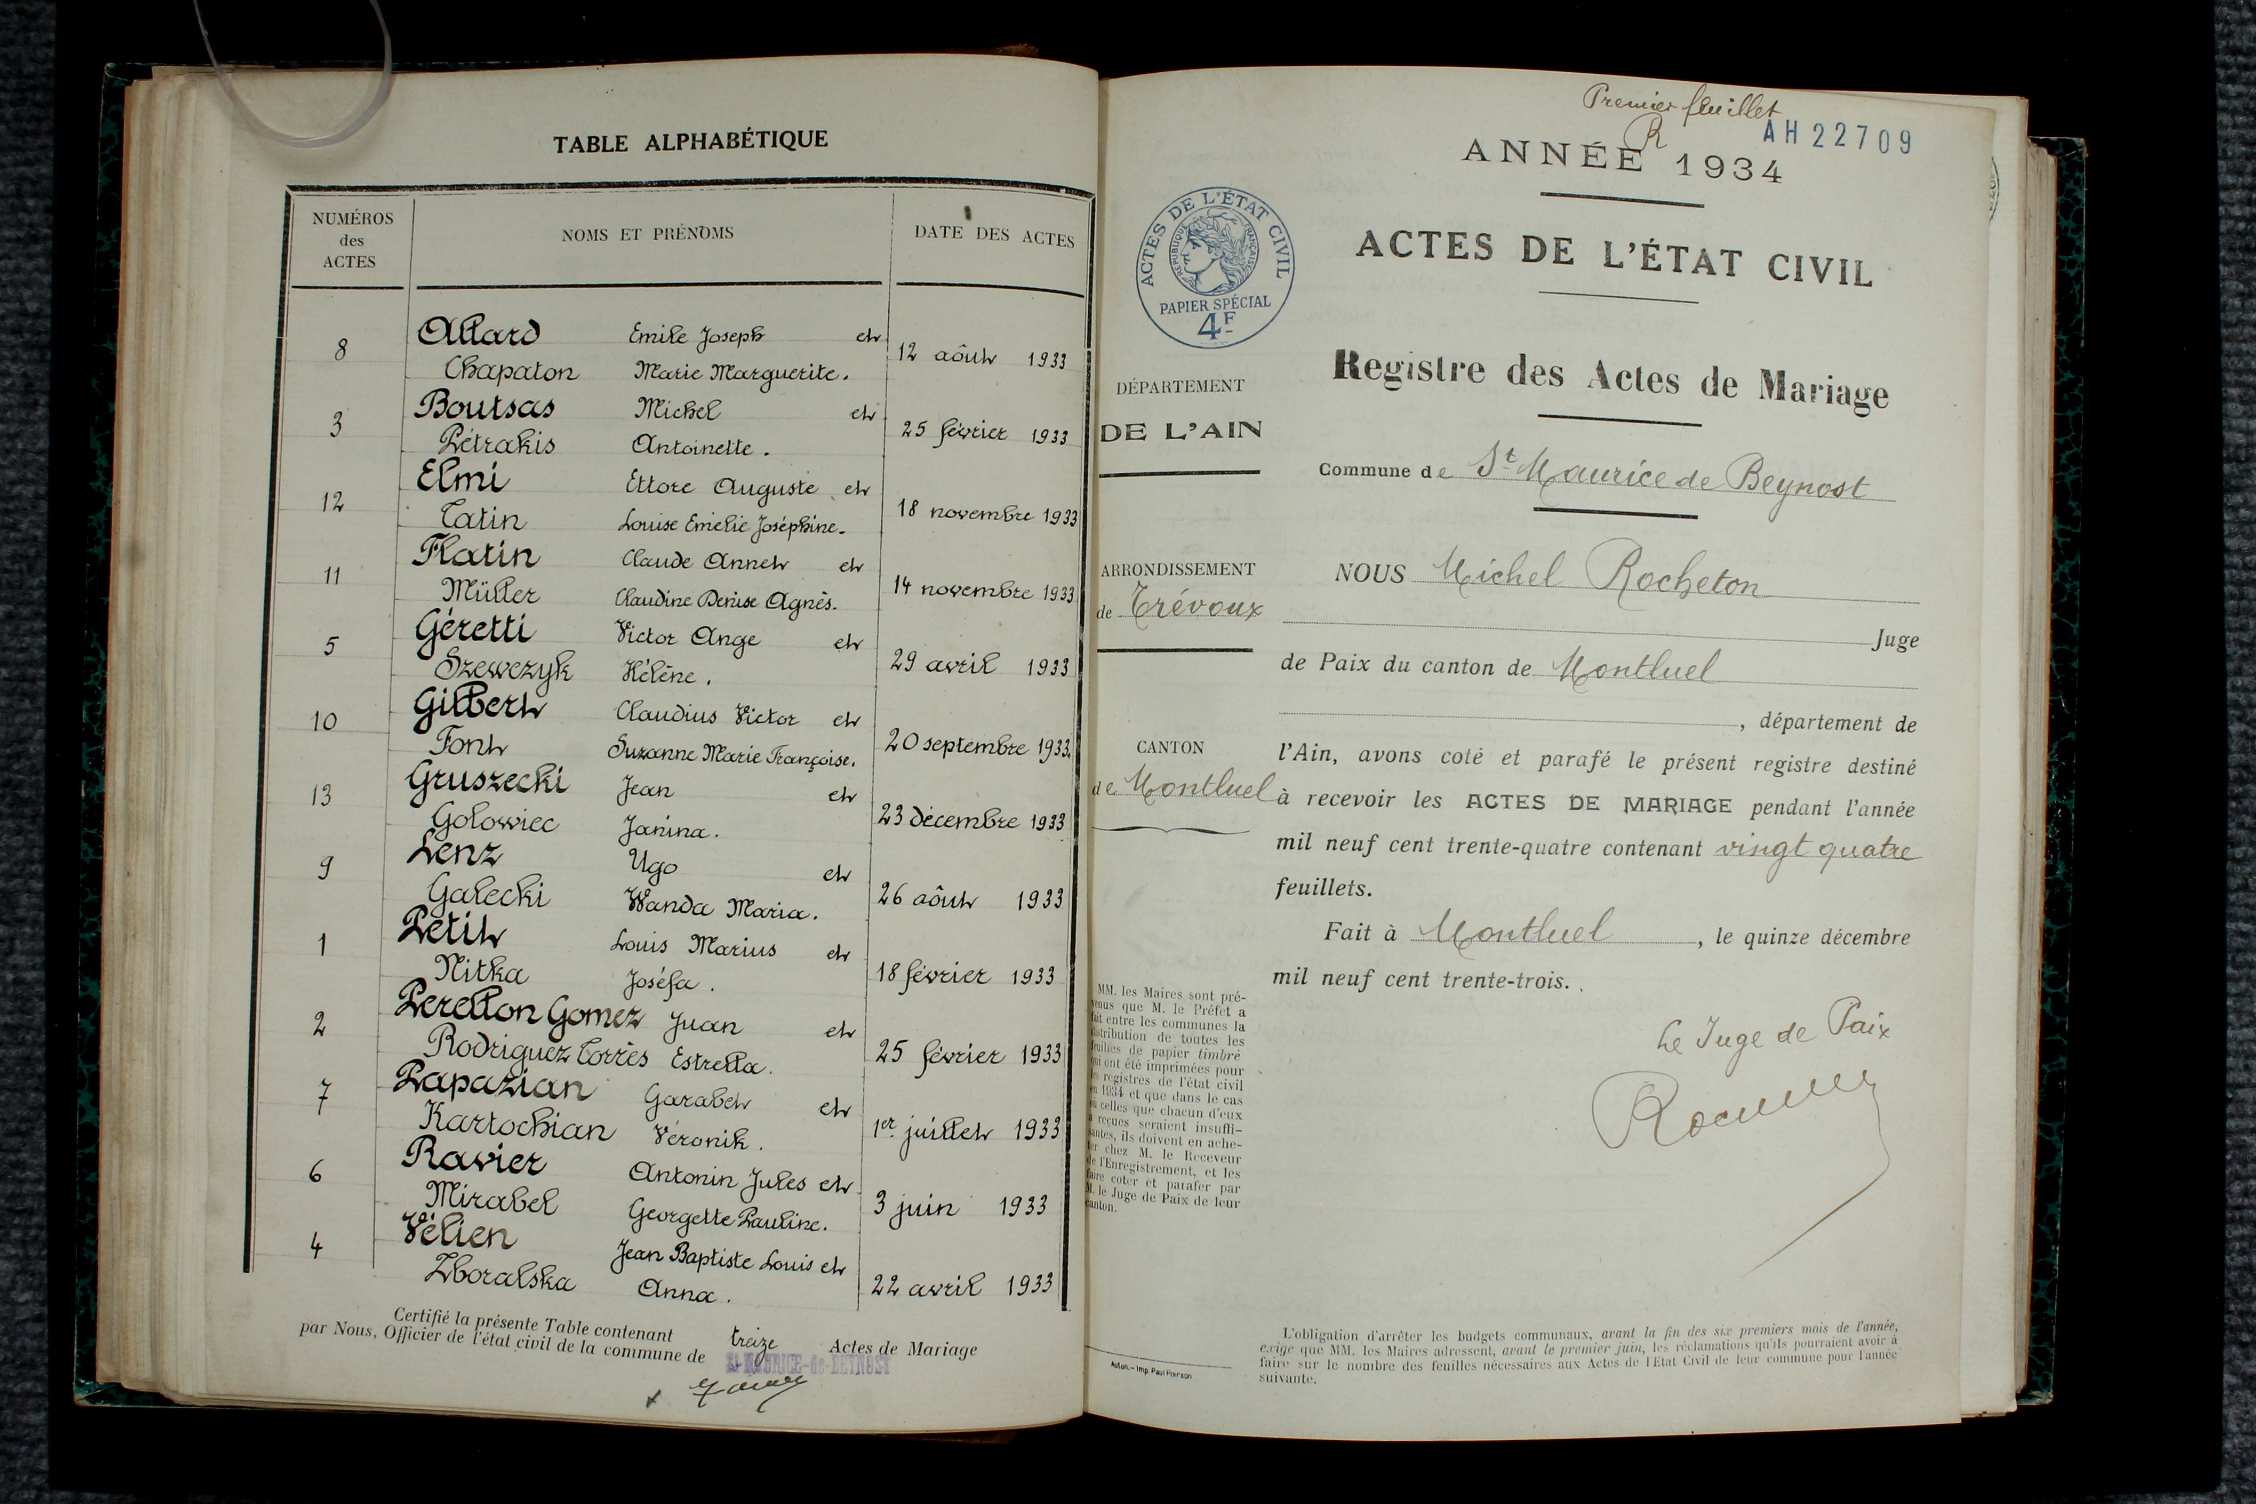 TABLE ALPHABÉTIQUE
NUMÉROS
des
ACTES
NOMS ET PRÉNOMS
DATE DES ACTES
8 Allard Emile Joseph et 12 aôut 1933
Chapaton Marie Marguerite.
3 Boutsas Michel et 25 février 1933
Pétrakis Antoinette.
12 Elmi Ettore Auguste et 18 novembre 1933
Tatin Louise Emélie Joséphine.
11 Flatin Claude Annet et 14 novembre 1933
Müller Claudine Denise Agnès.
5 Géretti Victor Ange et 29 avril 1933
Szewczyk Hélène.
10 Gilbert Claudius Victor et 20 septembre 1933.
Font Suzanne Marie Françoise.
13 Gruszecki Jean et 23 décembre 1933
Golowiec Janina.
9 Lenz Ugo et 26 aôut 1933
Galecki Wanda Maria.
1 Petit Louis Marius et 18 février 1933
Nitka Joséfa.
2 Perellon Gomez Juan et 25 février 1933
Rodriguez Torrès Estrella.
7 Papazian Garabet et 1er juillet 1933
Kartochian Véronik.
6 Ravier Antonin Jules et 3 juin 1933
Mirabel Georgette Pauline.
4 Vélien Jean Baptiste Louis et 22 avril 1933
Zboralska Anna.
Certifié la présente Table contenant treize Actes de Mariage
par Nous, Officier de l'état civil de la commune de St MAURICE-de-BEYNOST
Premier feuillet
R
AH22709
ANNÉE 1934
ACTES DE L'ÉTAT CIVIL
RÉPUBLIQUE FRANÇAISE
PAPIER SPÉCIAL
4F
ACTES DE L'ÉTAT CIVIL
Registre des Actes de Mariage
Commune de St Maurice de Beynost
DÉPARTEMENT
DE L'AIN
ARRONDISSEMENT
de Trévoux
CANTON
de Montluel
MM. les Maires sont pré-
venus que M. le Préfet a
fait entre les communes la
distribution de toutes les
feuilles de papier timbré
qui ont été imprimées pour
les registres de l'état civil
en 1934 et que dans le cas
où celles que chacun d'eux
a reçues seraient insuffi-
santes, ils doivent en ache-
ter chez M. le Receveur
de l'Enregistrement, et les
faire coter et parafer par
M. le Juge de Paix de leur
canton.
Auton.–Imp. Paul Pierson
NOUS Michel Rocheton
Juge
de Paix du canton de Montluel
, département de
l'Ain, avons coté et parafé le présent registre destiné
à recevoir les ACTES DE MARIAGE pendant l'année
mil neuf cent trente-quatre contenant vingt quatre
feuillets.
Fait à Montluel, le quinze décembre
mil neuf cent trente-trois.
Le Juge de Paix
L'obligation d'arrêter les budgets communaux, avant la fin des six premiers mois de l'année,
exige que MM. les Maires adressent, avant le premier juin, les réclamations qu'ils pourraient avoir à
faire sur le nombre des feuilles nécessaires aux Actes de l'Etat Civil de leur commune pour l'année
suivante.